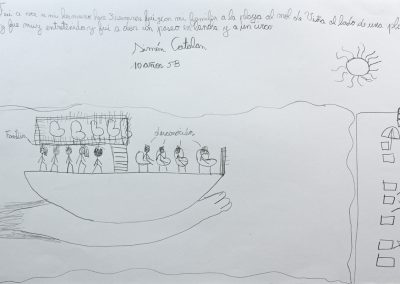 Fui a ver a mi hermano hace 3 semanas fui con mi familia a la playa al mol de Viña al lado de una pla
y fue muy entretenido y fui a dar un paseo en lancha y a un
Simón Catalan
10 años 5B
Familia
desconocidos